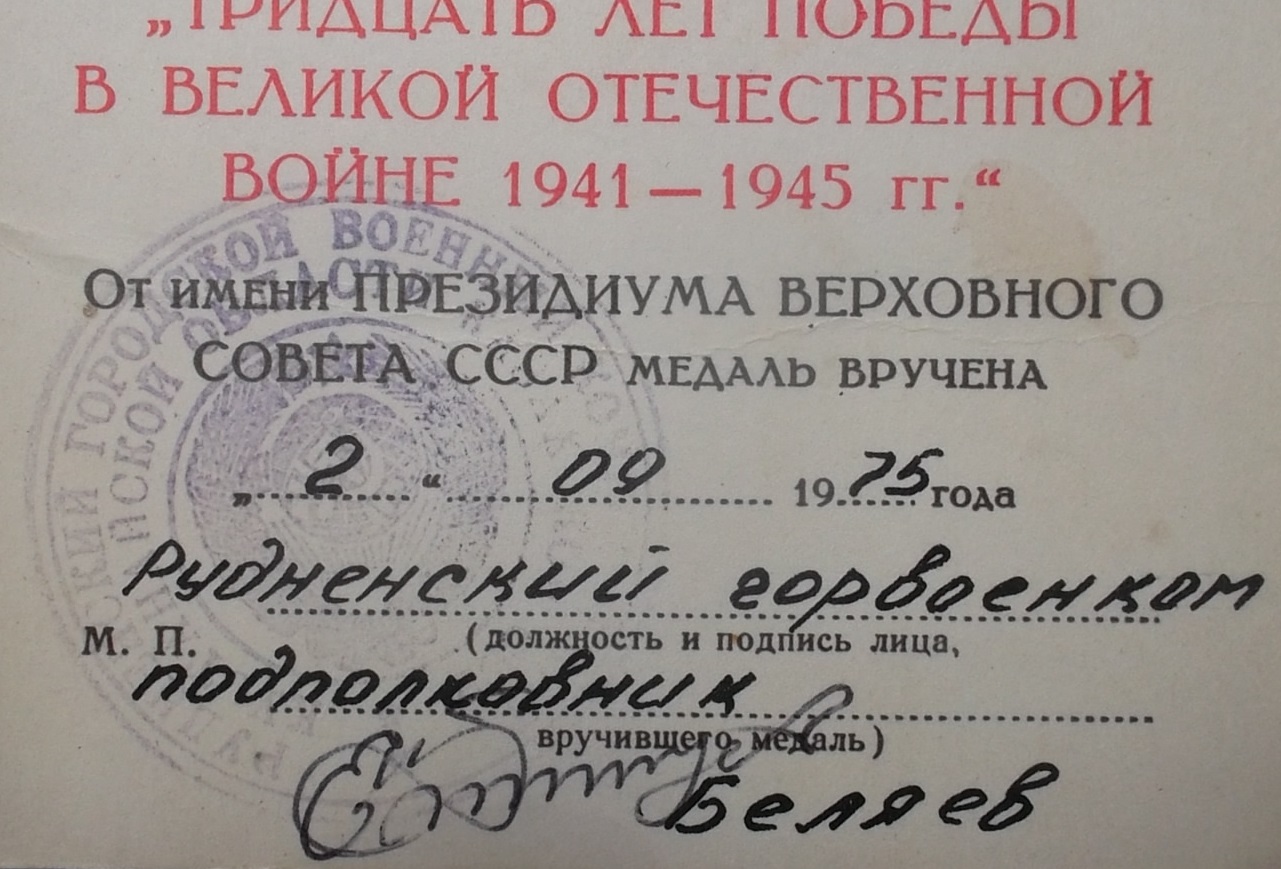 „ТРИДЦАТЬ ЛЕТ ПОБЕДЫ
В ВЕЛИКОЙ ОТЕЧЕСТВЕННОЙ
ВОЙНЕ 1941—1945 гг.“
От имени ПРЕЗИДИУМА ВЕРХОВНОГО
СОВЕТА СССР МЕДАЛЬ ВРУЧЕНА
„ 2 “ 09 19 75 года
Рудненский горвоенком
М. П. (должность и подпись лица,
подполковник
вручившего медаль)
Беляев
ГОРОДСКОЙ ВОЕННЫЙ